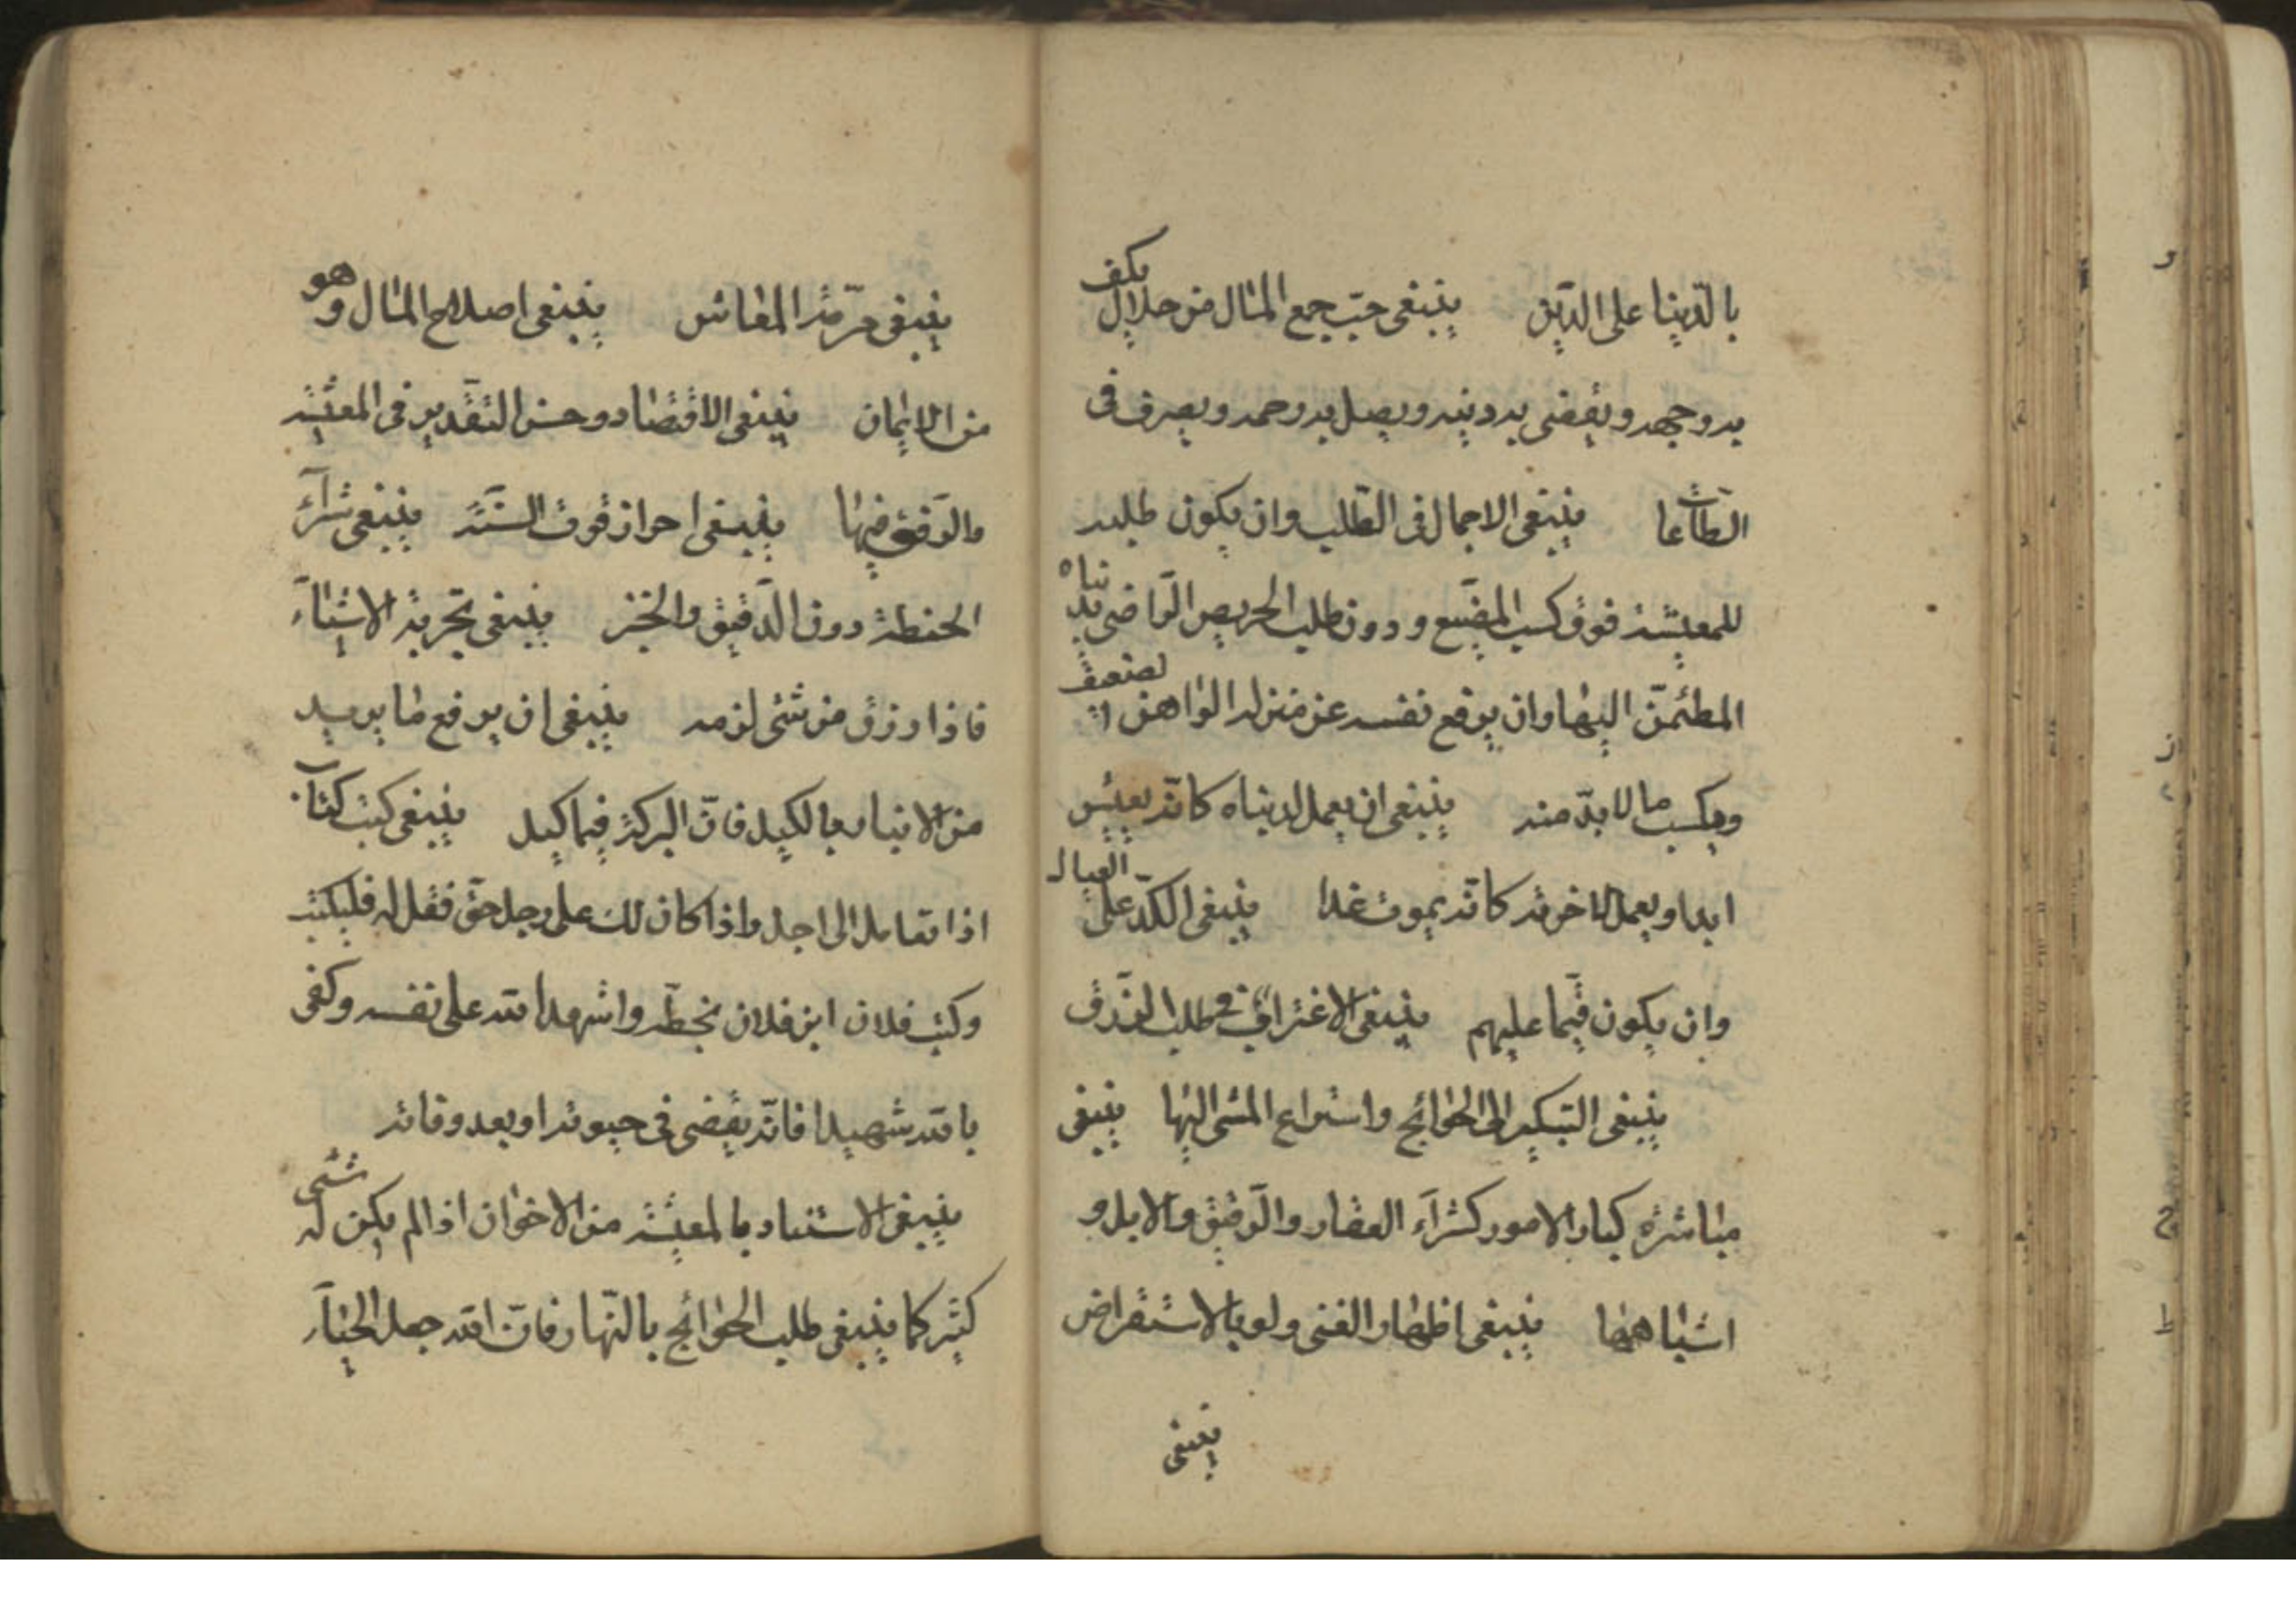 بالدّينا على الدّين ينبغى حبّ جمع المال من حلال يكف
به وجهه ويقضى به دينه ويصل به رحمه ويصرف فى
الطاعات ينبغى الاجمال فى الطّلب وان يكون طلبه
للمعيشة فوق كسب المضيّع ودون طلب الحريص الرّاضى بدنياه
المطئمنّ اليها وان يرفع نفسه عن منزلة الواهن الضعيف
ويكسب ما لا بدّ منه ينبغى ان يعمل لدنياه كانّه يعيش
ابدا ويعمل لاخرته كانّه يموت غدا ينبغى الكدّ على العيال
وان يكون قيّما عليهم ينبغى الاغتراب فى طلب الرّزق
ينبغى التبكير الى الحوائج واسراع المشى اليها ينبغى
مباشرة كبار الامور كشراء العقار والرّقيق والابل و
اشباهها ينبغى اظهار الغنى ولو بالاستقراض
ينبغى
ينبغى مرمّة المعاش ينبغى اصلاح المال وهو
من الايمان ينبغى الاقتصاد وحسن التقدير فى المعيشة
والرّفق فيها ينبغى احراز قوت السّنة ينبغى شراء
الحنطة دون الدّقيق والخبز ينبغى تجربة الاشياء
فاذا رزق من شئ لزمه ينبغى ان يرفع ما يريد
من الانبار بالكيل فانّ البركة فيما كيل ينبغى كتب كتاب
اذا تعامل الى اجل واذا كان لك على رجل حقّ فقل له فليكتب
وكتب فلان ابن فلان بخطّه واشهد الله على نفسه وكفى
بالله شهيدا فانّه يقضى فى حيوته او بعد وفاته
ينبغى الاستتار بالمعيشة من الاخوان اذا لم يكن له شئى
كثير كما ينبغى طلب الحوائج بالنّهار فانّ الله جعل الحياء